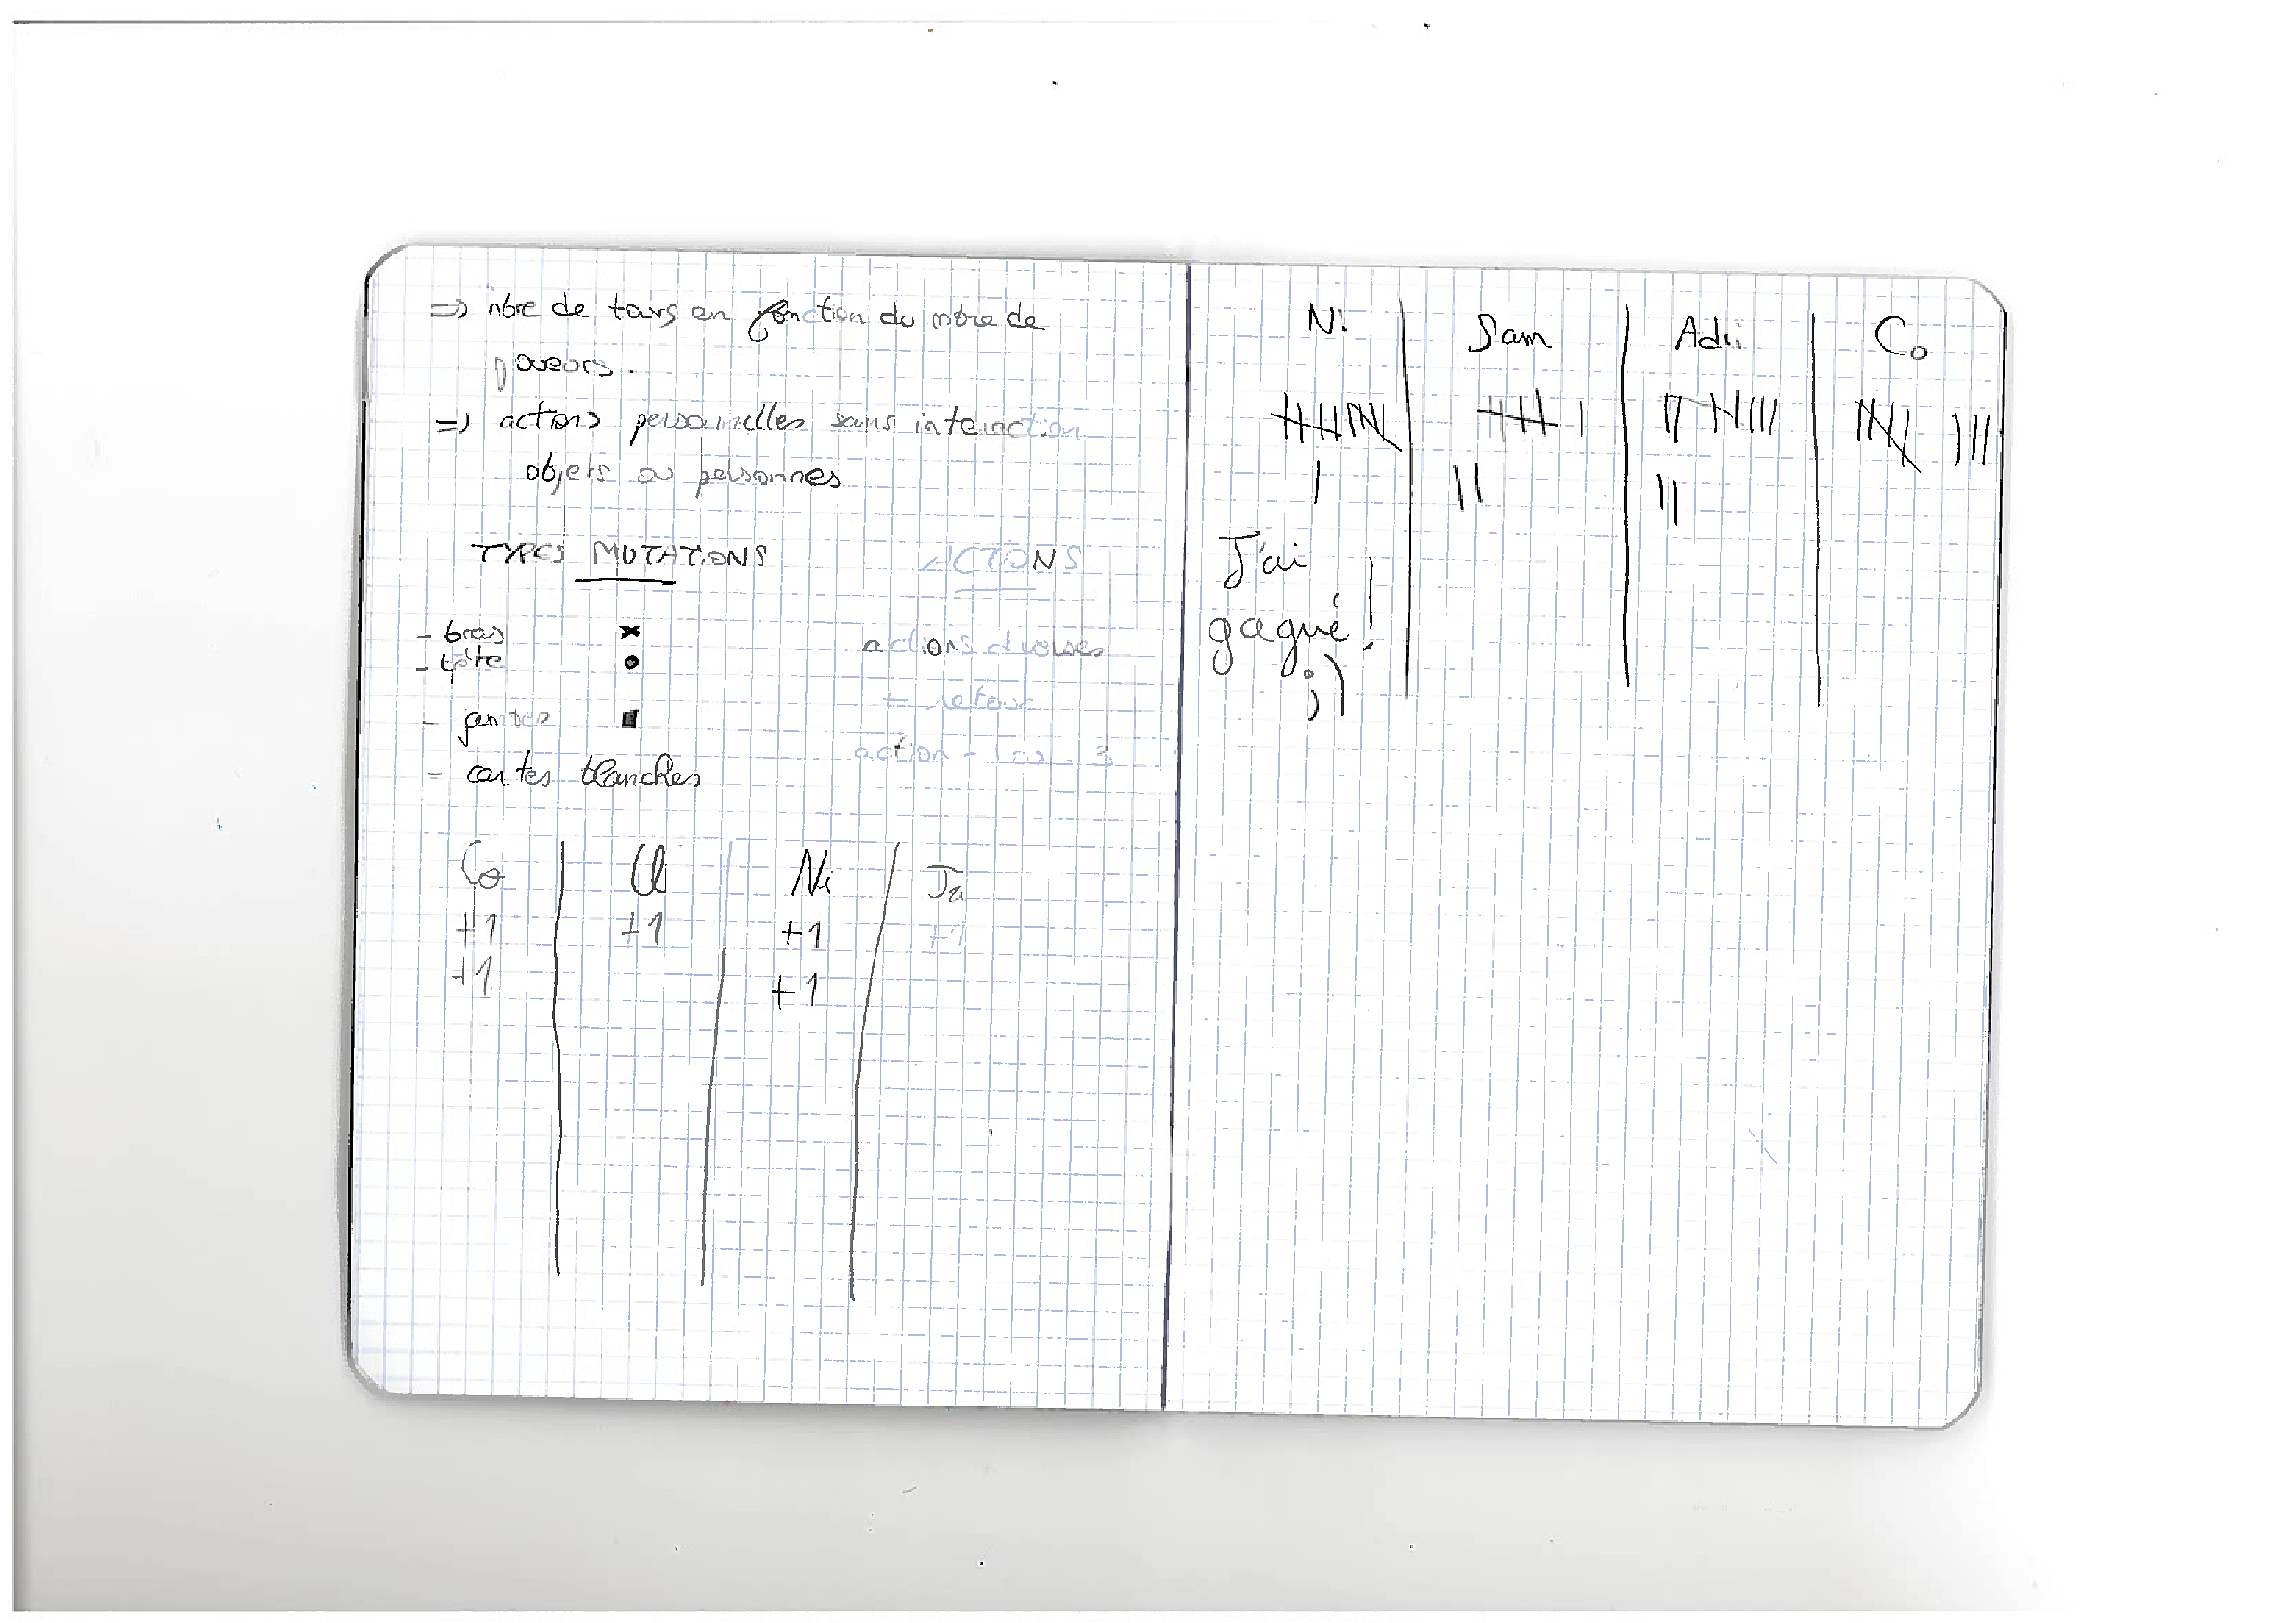 => nbre de tours en fonction du nbre de
joueurs.
=> actions personnelles sans interaction
objets ou personnes
TYPES MUTATIONS
ACTIONS
- bras
- tête
- jambes
- cartes blanches
actions diverses
+ retour
action - 3
Co Cl Ni Ja
+1 +1 +1 +1
+1 +1
Ni Sam Adri Co
J'ai
gagné !
;)